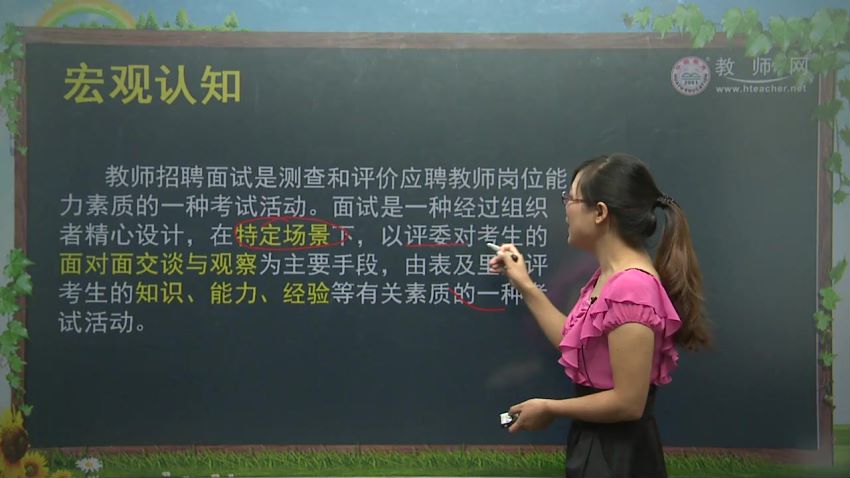 宏观认知
教师网
www.hteacher.net
教师招聘面试是测查和评价应聘教师岗位能
力素质的一种考试活动。面试是一种经过组织
者精心设计，在特定场景下，以评委对考生的
面对面交谈与观察为主要手段，由表及里 评
考生的知识、能力、经验等有关素质的一种考
试活动。